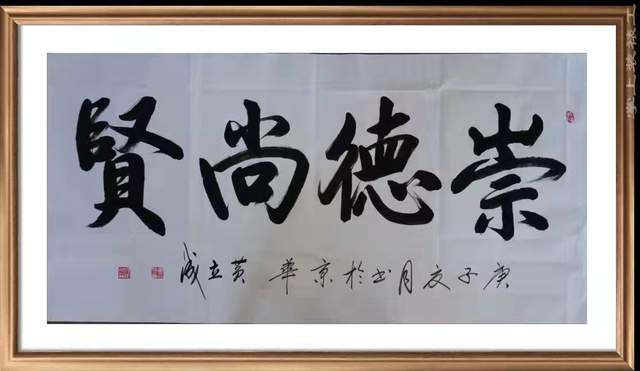 崇德尚賢
庚子夏月书於京華 黄立成